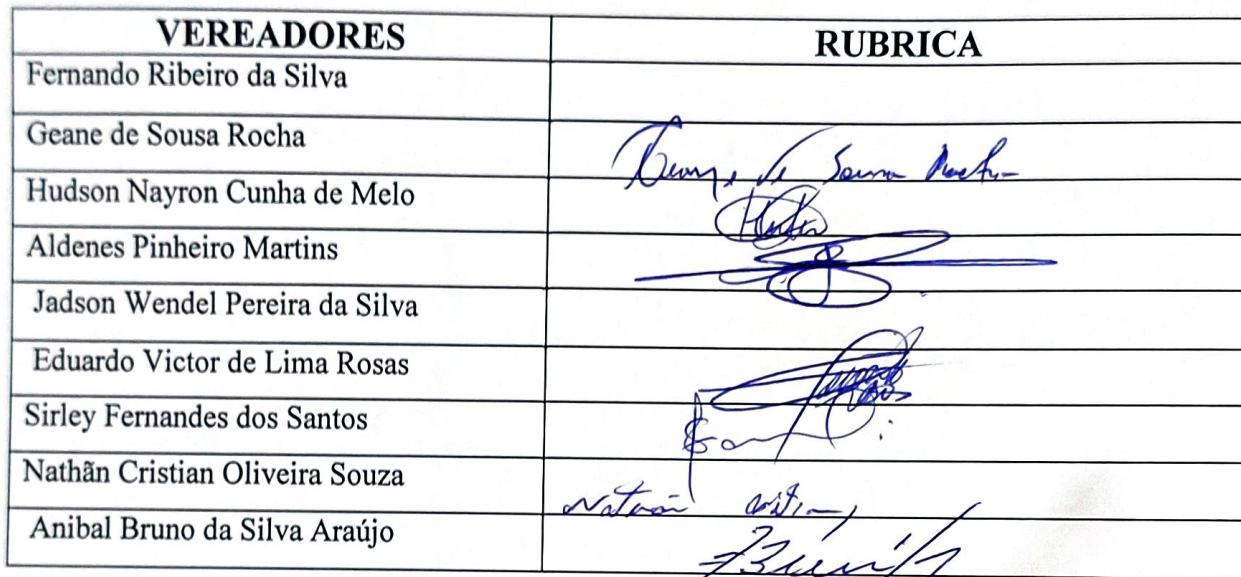 VEREADORES RUBRICA
Fernando Ribeiro da Silva
Geane de Sousa Rocha
Hudson Nayron Cunha de Melo
Aldenes Pinheiro Martins
Jadson Wendel Pereira da Silva
Eduardo Victor de Lima Rosas
Sirley Fernandes dos Santos
Nathãn Cristian Oliveira Souza
Anibal Bruno da Silva Araújo